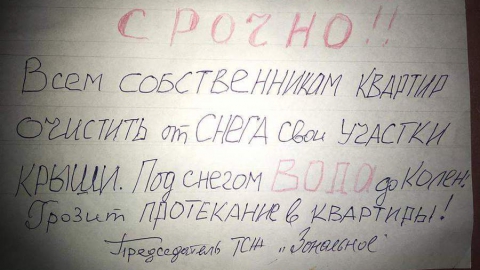 СРОЧНО!!
Всем собственникам квартир
очистить от СНЕГА свои участки
крыши. Под снегом ВОДА до колен!
Грозит протекание в квартиры!
Председатель ТСЖ „Зональное"